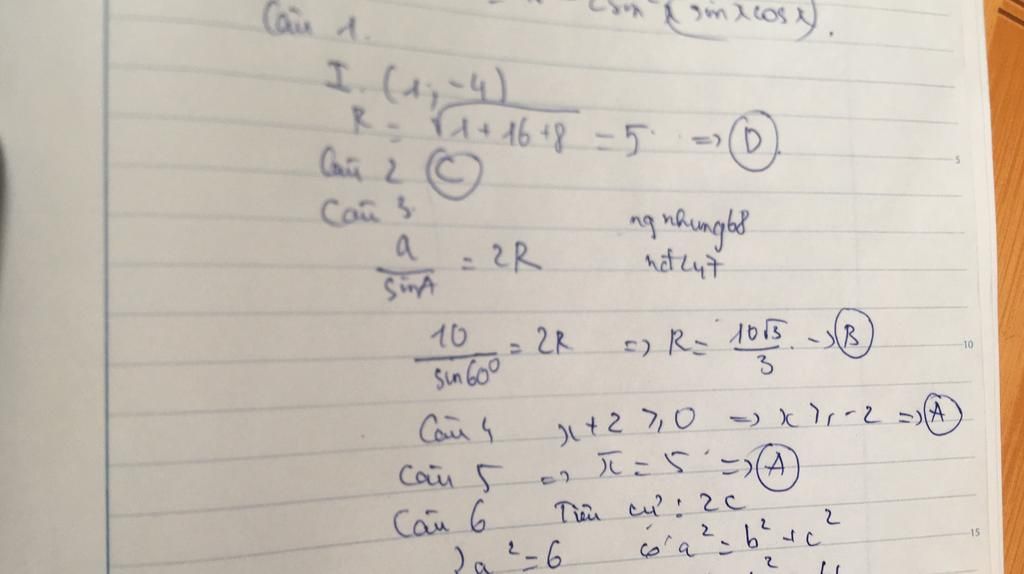 (sinxcosx).
Câu 1.
I. (1; -4)
R = √1+16+8 = 5 => D
Câu 2 C
Câu 3
a/sinA = 2R
nq nhung68
10/sin60⁰ = 2R => R = 10√3/3 -> B
Câu 4 x+2 ⩾ 0 => x ⩾ -2 => A
Câu 5 => x̄ = 5 => A
Câu 6 Tiêu cự: 2c
a² = 6 có a² = b² + c²